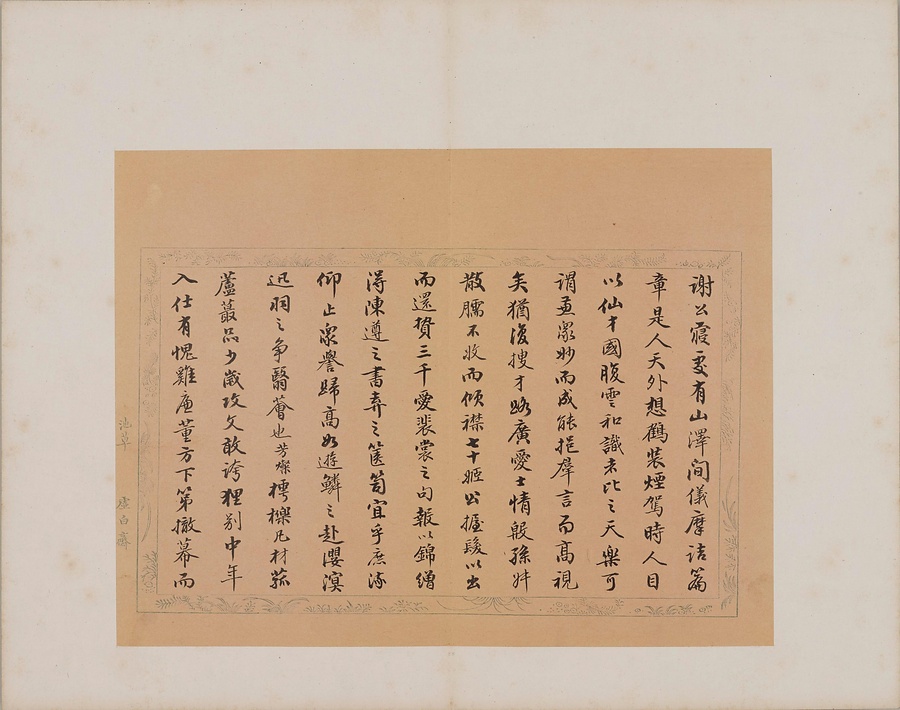 謝公寢處有山澤間儀摩詰篇
章是人天外想鶴裝煙駕時人目
以仙才國腹雲和識者比之天樂可
謂孟眾妙而成能挹羣言而高視
矣猶復搜才路廣愛士情殷孫卅
散臑不收而傾襟七十姬公握髮以出
而還贄三千愛裴裳之句報以錦繒
得陳遵之書弆之篋笥宜乎庶流
仰止眾譽歸高如遊鱗之赴瀴溟
迅羽之爭翳薈也芳燦樗櫟凡材菰
蘆蕞品少歲攻文敢誇狸別中年
入仕有愧雞廉董方下第撤幕而
池草
虛白齋